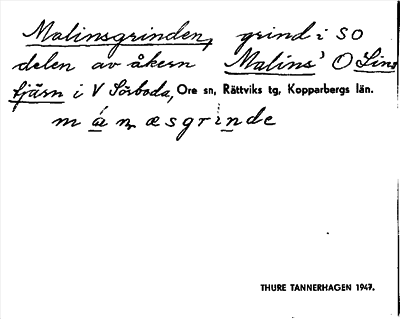 Malinsgrinden, grind i SO
delen av åkern Malins' O Lins
tjärn i V Sörboda, Ore sn, Rättviks tg, Kopparbergs län.
THURE TANNERHAGEN 1947.